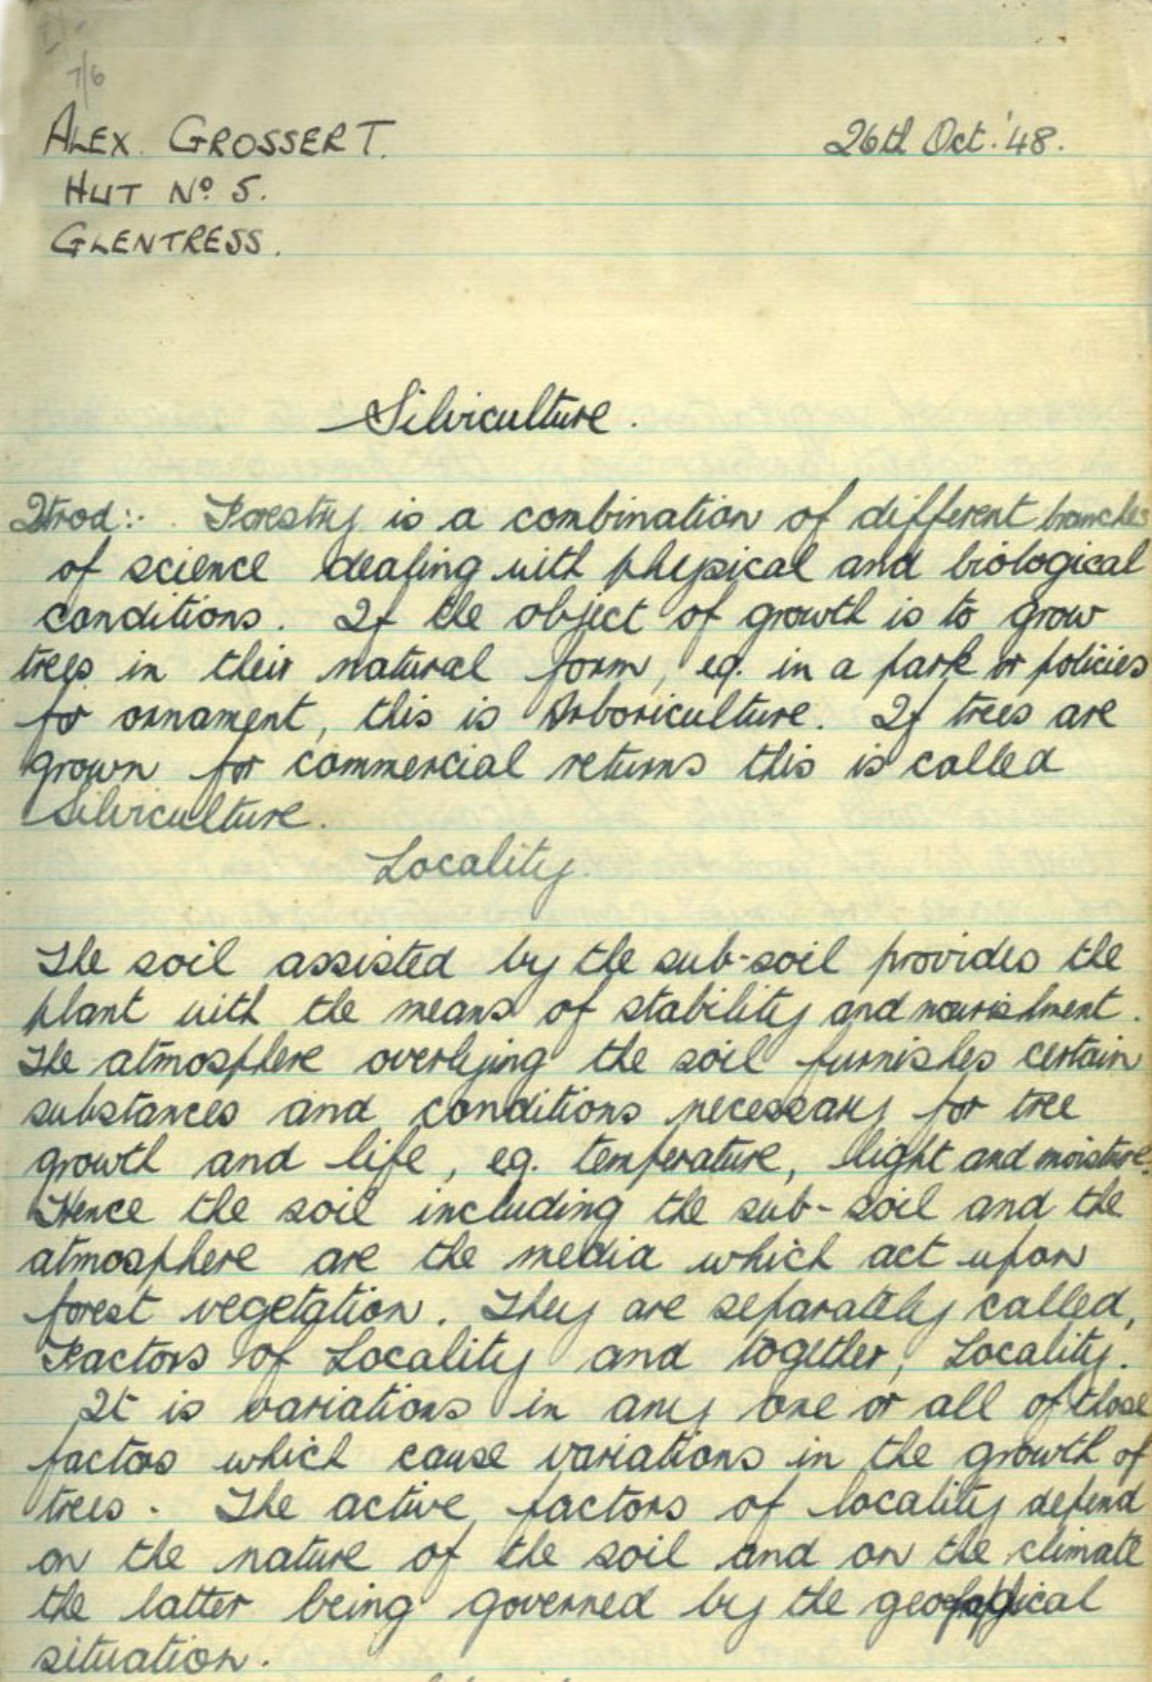 7/6
ALEX. GROSSERT.
26th Oct. '48.
HUT No 5.
GLENTRESS.
Silviculture.
Itrod:- Forestry is a combination of different branches
of science dealing with physical and biological
conditions. If the object of growth is to grow
trees in their natural form, eg. in a park or policies
for ornament, this is Arboriculture. If trees are
grown for commercial returns this is called
Silviculture.
Locality.
The soil assisted by the sub-soil provides the
plant with the means of stability and nourishment.
The atmosphere overlying the soil furnishes certain
substances and conditions necessary for tree
growth and life, eg. temperature, light and moisture.
Hence the soil including the sub-soil and the
atmosphere are the media which act upon
forest vegetation. They are separately called,
Factors of Locality and together, Locality.
It is variations in any one or all of those
factors which cause variations in the growth of
trees. The active factors of locality depend
on the nature of the soil and on the climate
the latter being governed by the
situation.